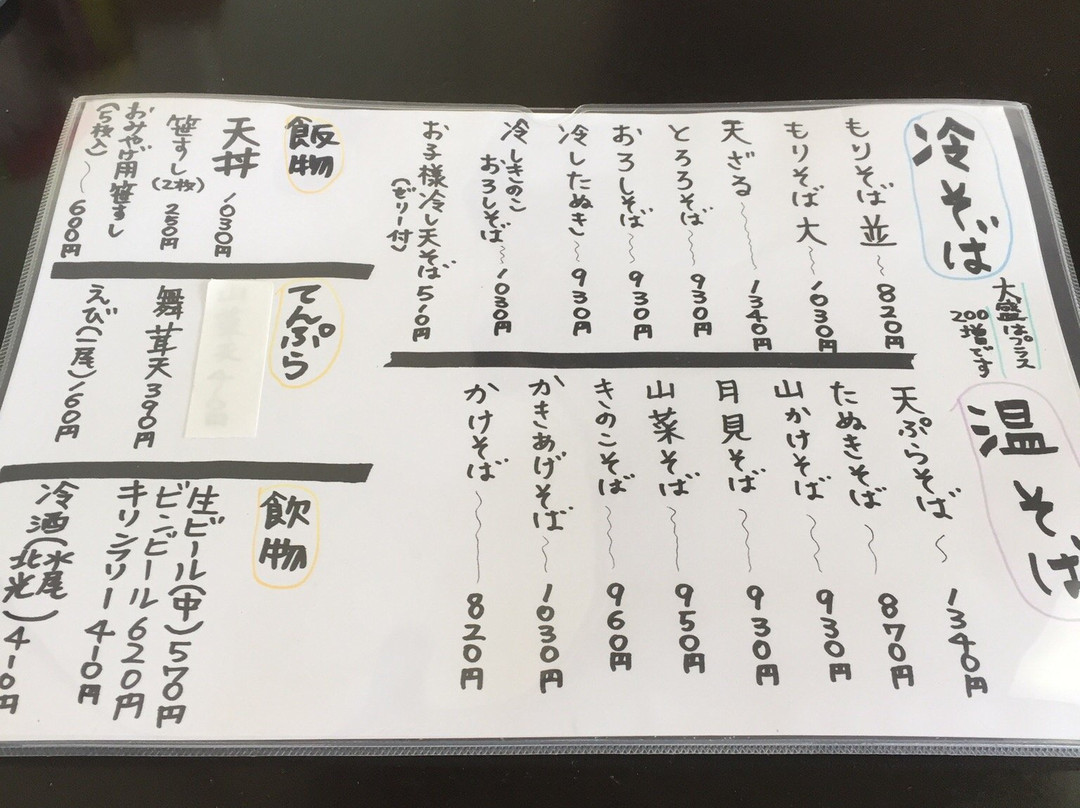 冷そば
大盛はプラス
200増です
もりそば 並〜820円
もりそば 大〜1030円
天ざる〜1340円
とろろそば〜930円
おろしそば〜930円
冷したぬき〜930円
冷しきのこ
おろしそば〜1030円
お子様冷し天そば 510円
(ゼリー付)
温そば
天ぷらそば〜1340円
たぬきそば〜870円
山かけそば〜930円
月見そば〜930円
山菜そば〜950円
きのこそば〜960円
かきあげそば〜1030円
かけそば〜820円
飯物
天丼 1030円
笹すし(2枚) 250円
おみやげ用笹すし
(5枚入)〜600円
てんぷら
舞茸天390円
えび(一尾)160円
飲物
生ビール(中)570円
ビンビール620円
キリンフリー410円
冷酒(水尾
北光)410円